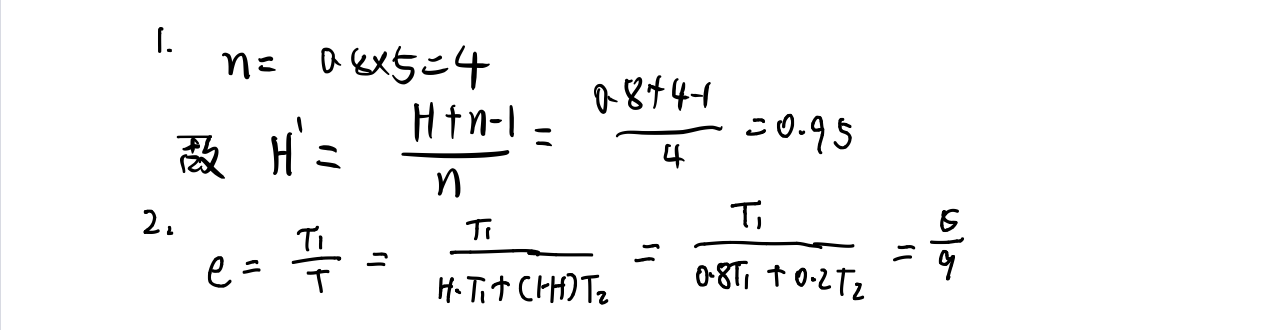 1. n = 0.8×5=4
H' = \frac{H+n-1}{n} = \frac{0.8+4-1}{4} = 0.95
2. e = \frac{T_1}{T} = \frac{T_1}{H \cdot T_1 + (1-H)T_2} = \frac{T_1}{0.8T_1 + 0.2T_2} = \frac{5}{9}